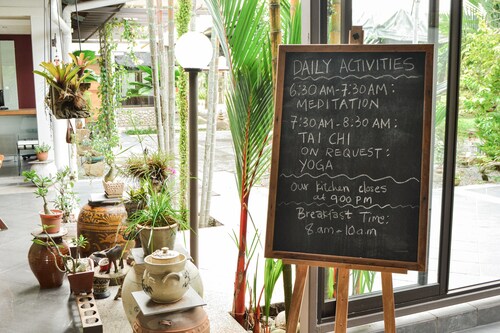 DAILY ACTIVITIES
6:30AM-7:30AM:
MEDITATION
7:30AM-8:30AM:
TAI CHI
ON REQUEST:
YOGA
Our kitchen closes
at 900 PM
Breakfast Time:
8am-10am